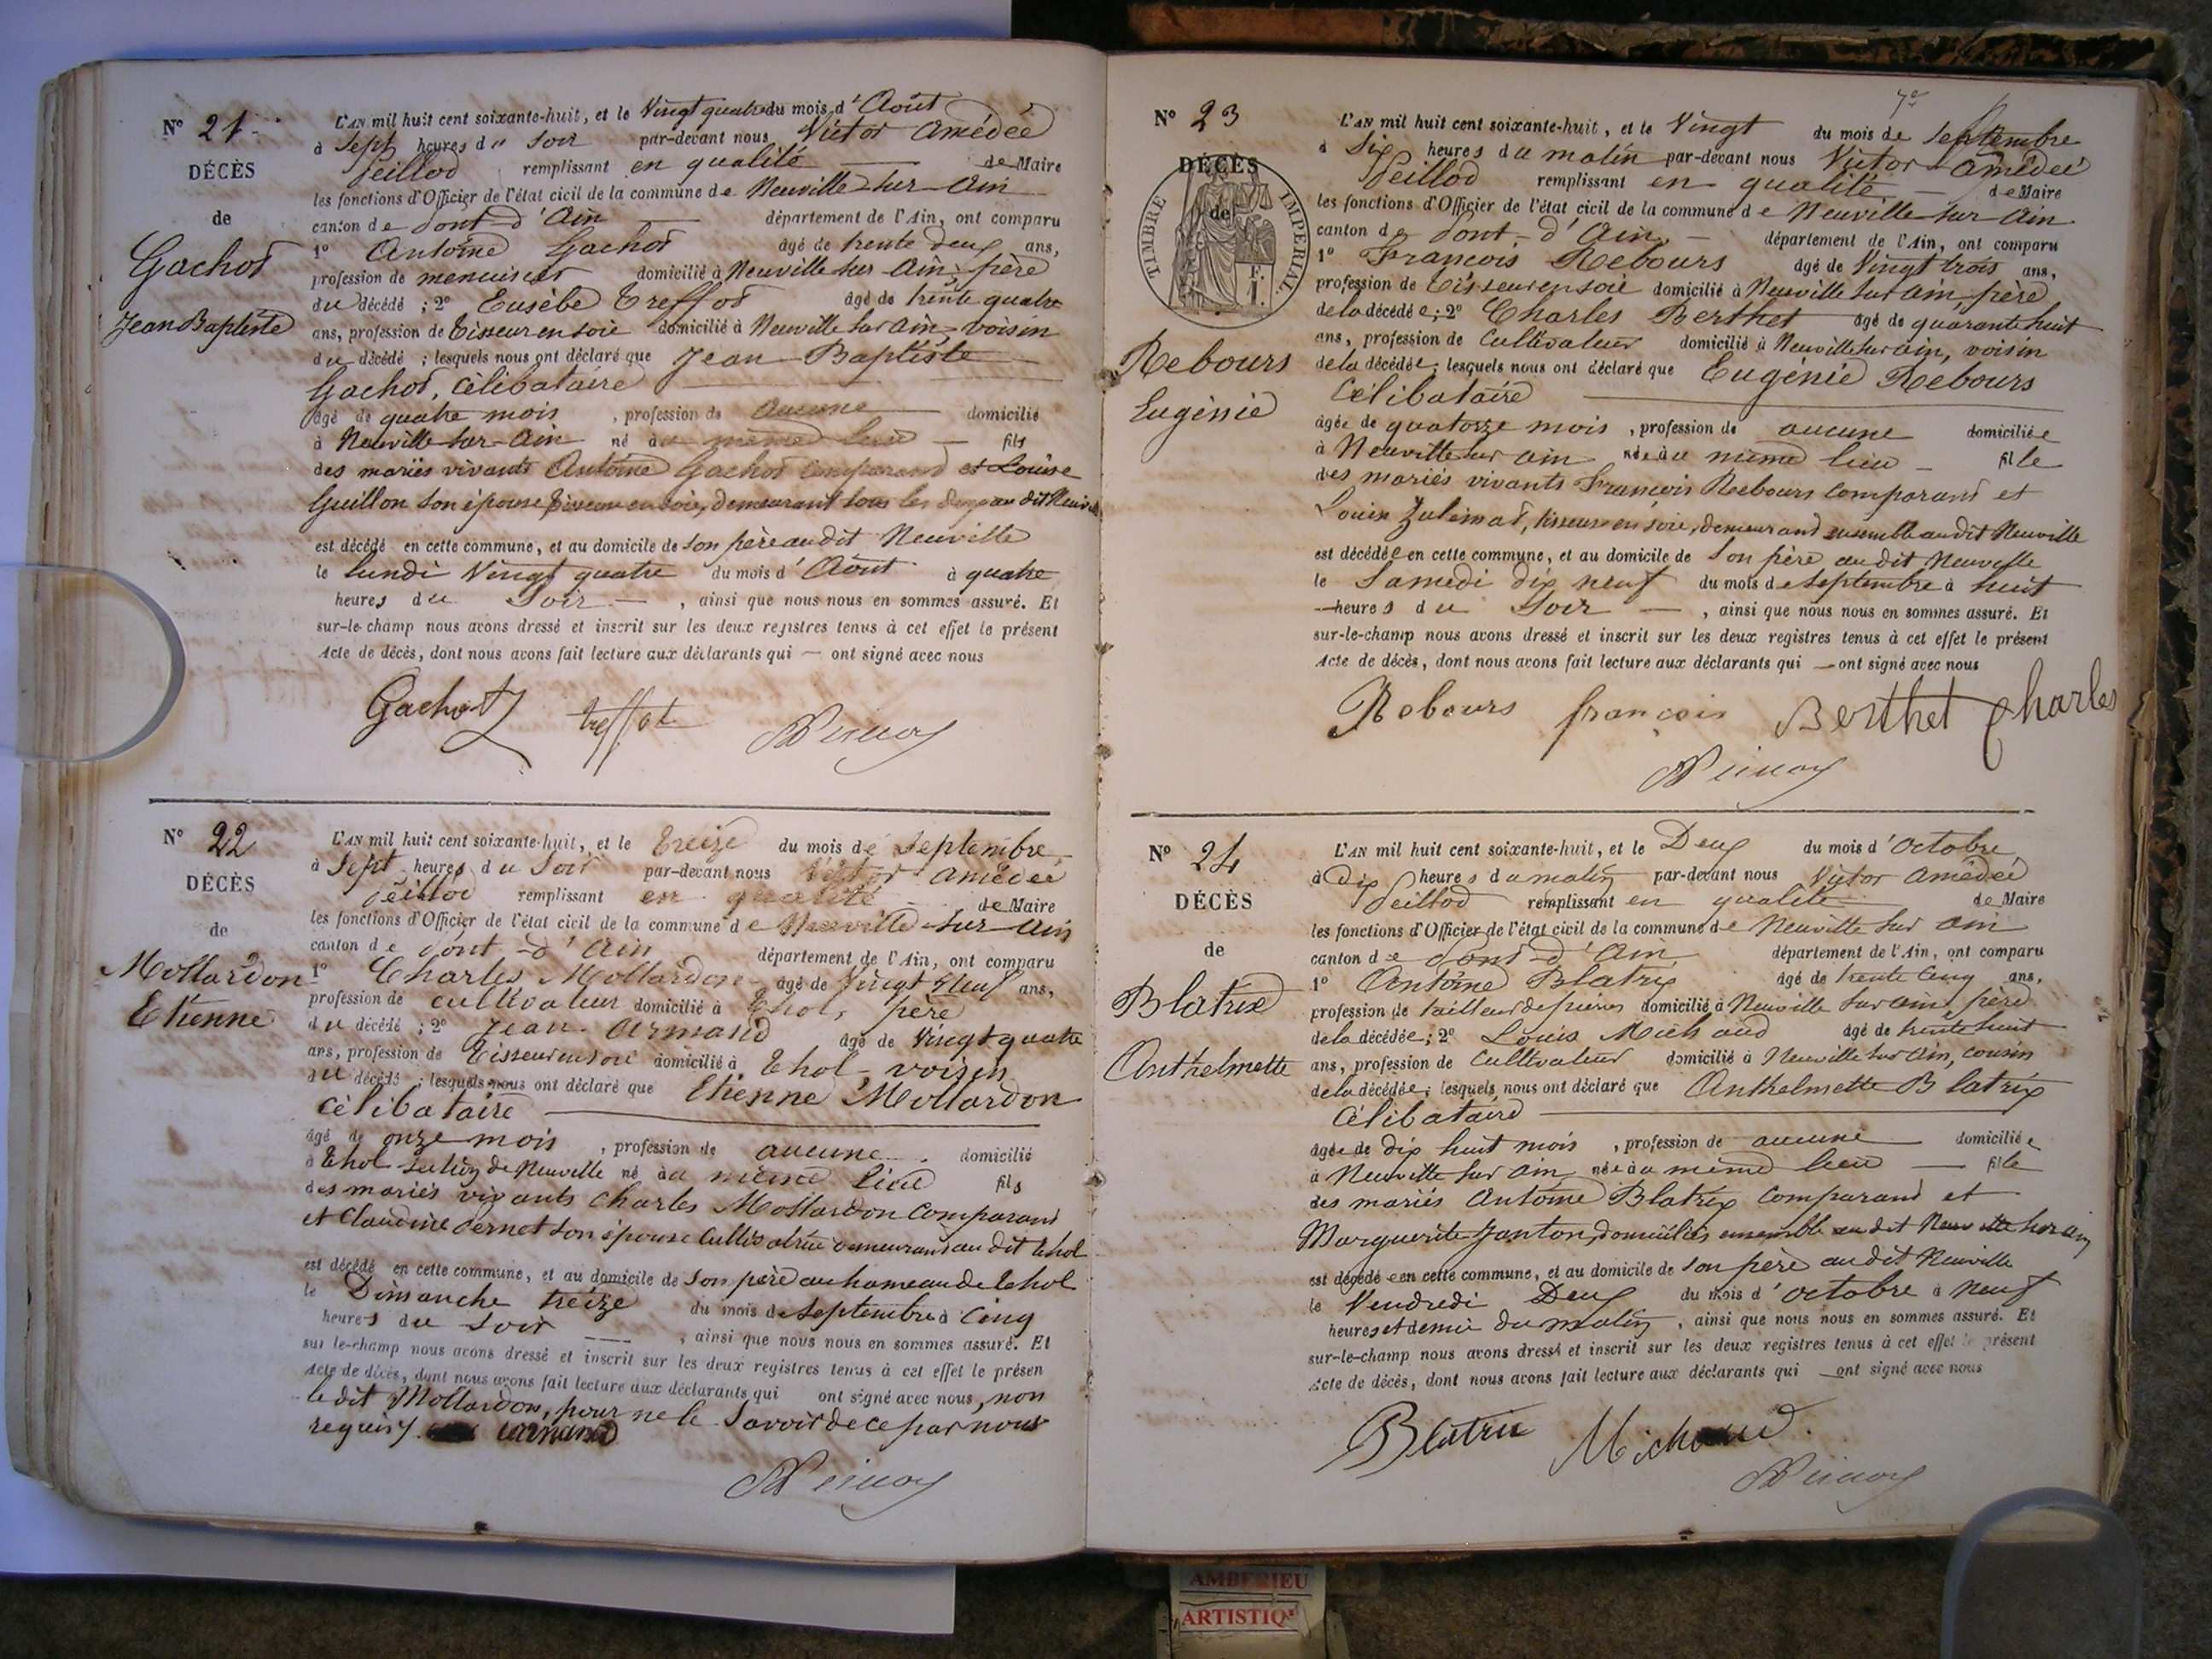 N° 21
DÉCÈS
de
Gachod
Jean Baptiste
L'AN mil huit cent soixante-huit, et le Vingt quatre du mois d'Août
à Sept heures du Soir par-devant nous Victor Amédée
Peillod remplissant en qualité de Maire
les fonctions d'Officier de l'état civil de la commune de Neuville-sur-Ain
canton de Pont-d'Ain département de l'Ain, ont comparu
1° Antoine Gachod âgé de trente deux ans,
profession de menuisier domicilié à Neuville sur Ain, père
du décédé ; 2° Eusèbe Treffod âgé de trente quatre
ans, profession de Tisseur en soie domicilié à Neuville sur Ain, voisin
du décédé ; lesquels nous ont déclaré que Jean Baptiste
Gachod, célibataire
âgé de quatre mois , profession de aucune domicilié
à Neuville-sur-Ain né au même lieu fils
des mariés vivants Antoine Gachod comparand et Louise
Guillon son épouse, Tisseur en soie, demeurant tous les deux au dit Neuville
est décédé en cette commune, et au domicile de son père au dit Neuville
le lundi Vingt quatre du mois d'Août à quatre
heures du Soir , ainsi que nous nous en sommes assuré. Et
sur-le-champ nous avons dressé et inscrit sur les deux registres tenus à cet effet le présent
Acte de décès, dont nous avons fait lecture aux déclarants qui — ont signé avec nous
Gachot treffot
N° 22
DÉCÈS
de
Mollardon
Etienne
L'AN mil huit cent soixante-huit, et le Treize du mois de Septembre
à Sept heures du Soir par-devant nous Victor Amédée
Peillod remplissant en qualité de Maire
les fonctions d'Officier de l'état civil de la commune de Neuville-sur-Ain
canton de Pont-d'Ain département de l'Ain, ont comparu
1° Charles Mollardon âgé de Vingt Neuf ans,
profession de cultivateur domicilié à Thol, père
du décédé ; 2° Jean Armand âgé de Vingt quatre
ans, profession de Tisseur en soie domicilié à Thol, voisin
du décédé ; lesquels nous ont déclaré que Etienne Mollardon
célibataire
âgé de onze mois , profession de aucune domicilié
à Thol de Neuville né au même lieu fils
des mariés vivants Charles Mollardon comparand
et Claudine Pernet son épouse Cultivatrice demeurant au dit Thol
est décédé en cette commune, et au domicile de son père au hameau de Thol
le Dimanche treize du mois de Septembre à Cinq
heures du Soir , ainsi que nous nous en sommes assuré. Et
sur-le-champ nous avons dressé et inscrit sur les deux registres tenus à cet effet le présen
Acte de décès, dont nous avons fait lecture aux déclarants qui ont signé avec nous, non
le dit Mollardon, pour ne le Savoir de ce par nous
requis. armand
7e
N° 23
DÉCÈS
de
TIMBRE IMPÉRIAL
Rebours
Eugénie
L'AN mil huit cent soixante-huit, et le Vingt du mois de Septembre
à Six heures du matin par-devant nous Victor Amédée
Peillod remplissant en qualité de Maire
les fonctions d'Officier de l'état civil de la commune de Neuville-sur-Ain
canton de Pont-d'Ain département de l'Ain, ont comparu
1° François Rebours âgé de Vingt trois ans,
profession de Tisseur en soie domicilié à Neuville sur Ain, père
de la décédée ; 2° Charles Berthet âgé de quarante huit
ans, profession de Cultivateur domicilié à Neuville sur Ain, voisin
de la décédée ; lesquels nous ont déclaré que Eugénie Rebours
Célibataire
âgée de quatorze mois , profession de aucune domiciliée
à Neuville sur Ain née au même lieu fille
des mariés vivants François Rebours comparand et
Louise, tisseur en soie, demeurand ensemble au dit Neuville
est décédée en cette commune, et au domicile de son père au dit Neuville
le Samedi dix neuf du mois de Septembre à huit
heures du Soir , ainsi que nous nous en sommes assuré. Et
sur-le-champ nous avons dressé et inscrit sur les deux registres tenus à cet effet le présent
Acte de décès, dont nous avons fait lecture aux déclarants qui — ont signé avec nous
Rebours françois Berthet Charles
N° 24
DÉCÈS
de
Blatrix
Anthelmette
L'AN mil huit cent soixante-huit, et le Deux du mois d'Octobre
à dix heures du matin par-devant nous Victor Amédée
Peillod remplissant en qualité de Maire
les fonctions d'Officier de l'état civil de la commune de Neuville sur Ain
canton de Pont-d'Ain département de l'Ain, ont comparu
1° Antoine Blatrix âgé de trente Cinq ans,
profession de tailleur de pierres domicilié à Neuville sur ain, père
de la décédée ; 2° Louis Michaud âgé de trente huit
ans, profession de Cultivateur domicilié à Neuville sur Ain, cousin
de la décédée ; lesquels nous ont déclaré que Anthelmette Blatrix
Célibataire
âgée de dix huit mois , profession de aucune domiciliée
à Neuville sur Ain née au même lieu fille
des mariés Antoine Blatrix comparand et
Marguerite Janton, domiciliés ensemble au dit Neuville sur ain
est décédée en cette commune, et au domicile de son père au dit Neuville
le Vendredi Deux du mois d'Octobre à Neuf
heures et demie du matin , ainsi que nous nous en sommes assuré. Et
sur-le-champ nous avons dressé et inscrit sur les deux registres tenus à cet effet le présent
Acte de décès, dont nous avons fait lecture aux déclarants qui — ont signé avec nous
Blatrix Michaud
AMBERIEU
ARTISTIQ